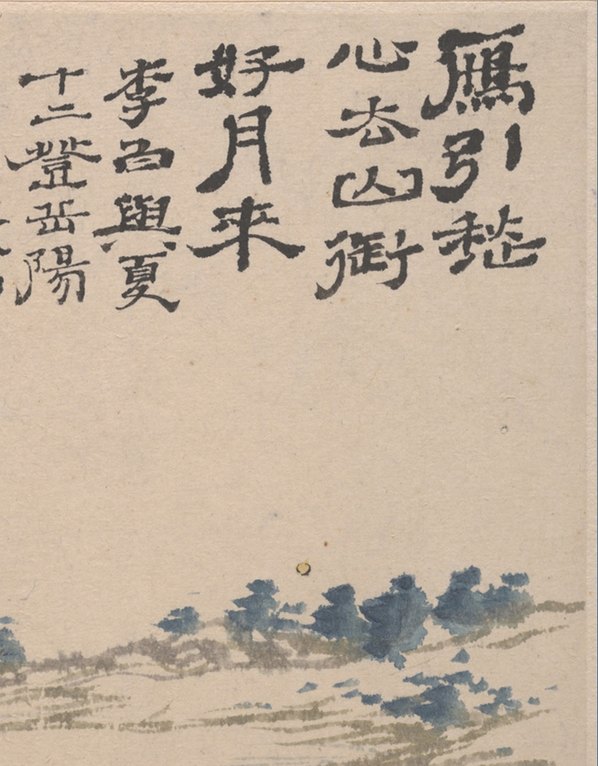 鴈引愁
心去山銜
好月来
李白與夏
十二登岳陽